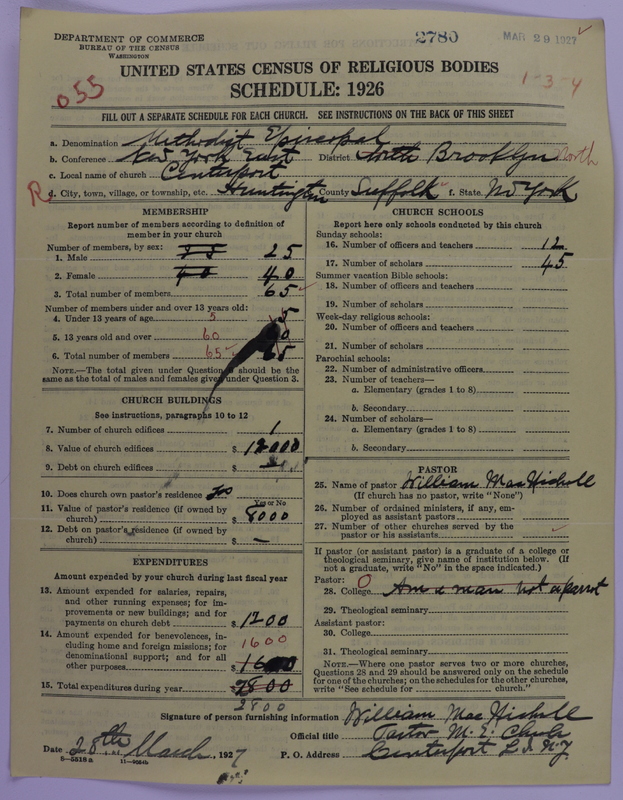 DEPARTMENT OF COMMERCE
BUREAU OF THE CENSUS
WASHINGTON
2780
MAR 29 1927
UNITED STATES CENSUS OF RELIGIOUS BODIES
SCHEDULE: 1926
055
1-3-4
FILL OUT A SEPARATE SCHEDULE FOR EACH CHURCH. SEE INSTRUCTIONS ON THE BACK OF THIS SHEET
a. Denomination Methodist Episcopal
b. Conference New York East District North Brooklyn North
c. Local name of church Centerport
R d. City, town, village, or township, etc. Huntington County Suffolk f. State N York
MEMBERSHIP
Report number of members according to definition of
member in your church
Number of members, by sex:
1. Male 25
2. Female 40 40
3. Total number of members 65
Number of members under and over 13 years old:
4. Under 13 years of age 5 5
5. 13 years old and over 60
6. Total number of members 65 65
NOTE.—The total given under Question 6 should be the
same as the total of males and females given under Question 3.
CHURCH BUILDINGS
See instructions, paragraphs 10 to 12
7. Number of church edifices 1
8. Value of church edifices $ 12000
9. Debt on church edifices $ —
10. Does church own pastor's residence
Yes or No
11. Value of pastor's residence (if owned by
church) $ 8000
12. Debt on pastor's residence (if owned by
church) $ —
EXPENDITURES
Amount expended by your church during last fiscal year
13. Amount expended for salaries, repairs,
and other running expenses; for im-
provements or new buildings; and for
payments on church debt $ 1200
14. Amount expended for benevolences, in-
cluding home and foreign missions; for
denominational support; and for all
other purposes $ 1600
15. Total expenditures during year $ 2800
2800
CHURCH SCHOOLS
Report here only schools conducted by this church
Sunday schools:
16. Number of officers and teachers 12
17. Number of scholars 45
Summer vacation Bible schools:
18. Number of officers and teachers
19. Number of scholars
Week-day religious schools:
20. Number of officers and teachers
21. Number of scholars
Parochial schools:
22. Number of administrative officers
23. Number of teachers—
a. Elementary (grades 1 to 8)
b. Secondary
24. Number of scholars—
a. Elementary (grades 1 to 8)
b. Secondary
PASTOR
25. Name of pastor William MacNicholl
(If church has no pastor, write "None")
26. Number of ordained ministers, if any, em-
ployed as assistant pastors
27. Number of other churches served by the
pastor or his assistants
If pastor (or assistant pastor) is a graduate of a college or
theological seminary, give name of institution below. (If
not a graduate, write "No" in the space indicated.)
Pastor:
28. College 0 Am a man not a parrot
29. Theological seminary
Assistant pastor:
30. College
31. Theological seminary
NOTE.—Where one pastor serves two or more churches,
Questions 28 and 29 should be answered only on the schedule
for one of the churches; on the schedules for the other churches,
write "See schedule for church."
Signature of person furnishing information William MacNicholl
Official title Pastor M. E. Church
Date 28th March, 1927 P. O. Address Centerport L. I. N. Y.